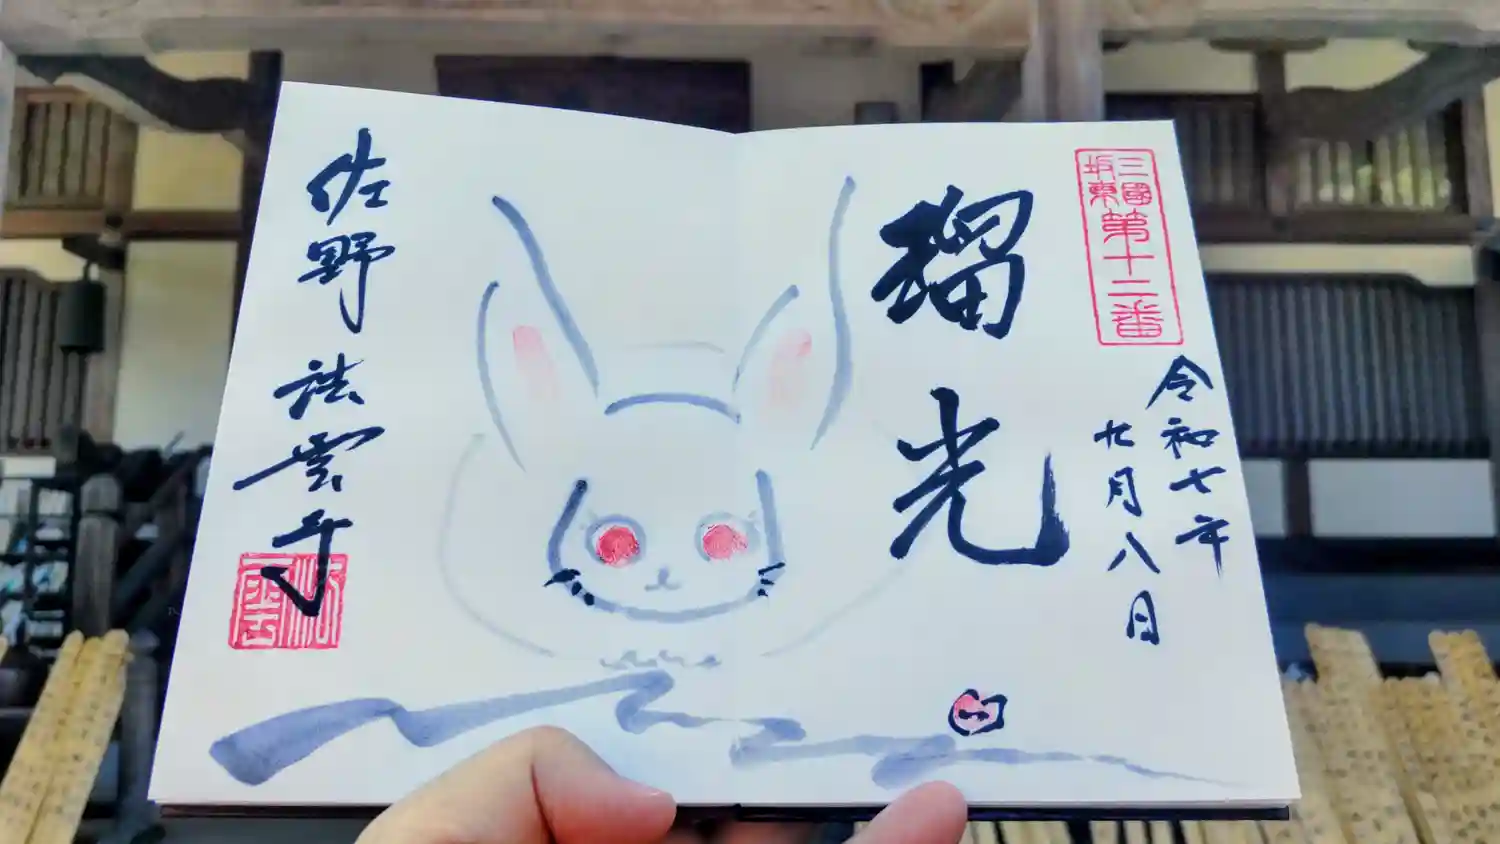 三國
坂東
第十二番
令和七年
九月八日
瑠光
佐野 法雲寺
法雲